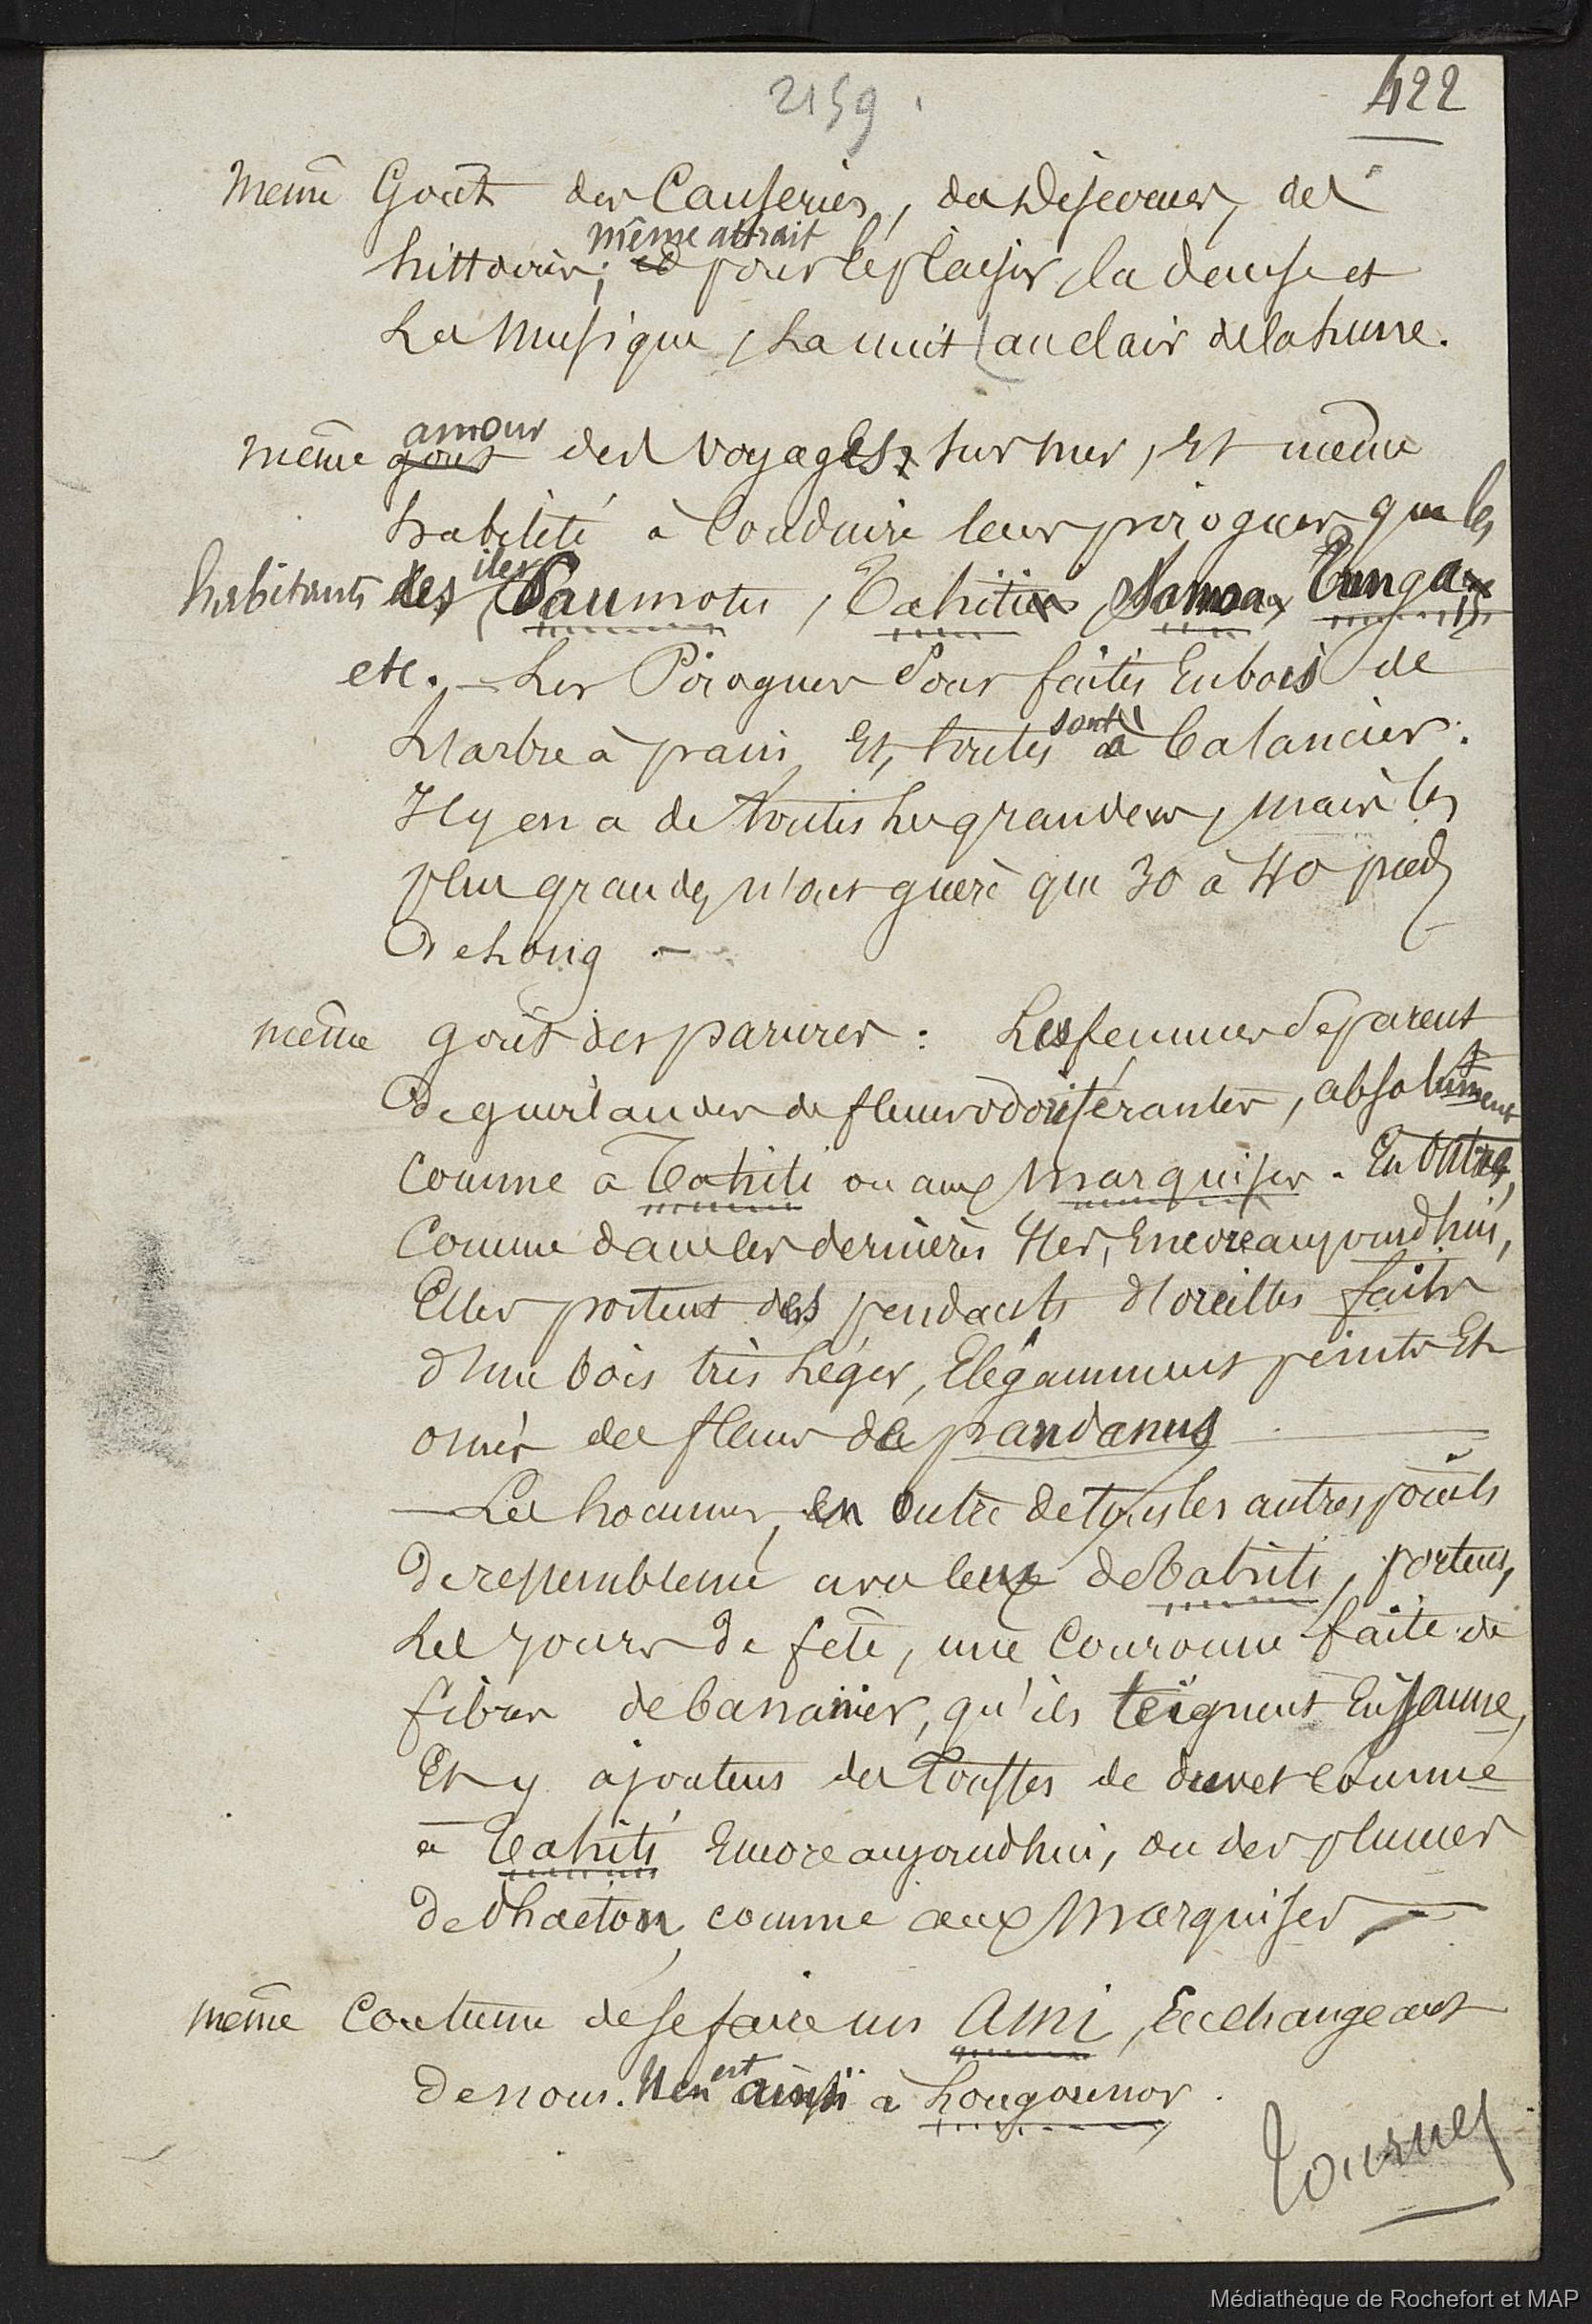 2159.
422
même Goût des Causeries, des Discours, des
même attrait
histoires; et pour le plaisir, la danse et
La Musique, La nuit au clair de la Lune.
amour
même gout des voyages sur mer, Et même
habileté à Conduire leurs pirogues que les
iles
habitants des Paumotu, Tahiti, Samoa, Tunga
etc. – Les Pirogues sont faites En bois de
sont
L'arbre à pain Et, toutes à balancier.
Il y en a de toutes Les grandeurs, mais les
plus grandes n'ont guère que 30 à 40 pieds
De Long –
même goût des parures : Les femmes se parent
De guirlandes de fleurs odoriférantes, absolument
Comme à Tahiti ou aux Marquises. En Outre,
Comme dans les dernières Iles, Encore aujourd'hui,
Elles portent des pendants d'oreilles faits
d'un bois très Léger, Elégamment peints Et
ornés de fleurs de pandanus
– Les hommes, en Outre de tous les autres points
De ressemblance avec ceux de Tahiti, portent,
Les jours de fête, une Couronne faite de
fibres de bananier, qu'ils teignent En jaune,
Et y ajoutent des touffes de duvet comme
à Tahiti Encore aujourd'hui, ou des plumes
De Phaeton, comme aux Marquises –
même Coutume de se faire un Ami, En echangeant
est
De noms. Il en ainsi à Lougounor.
Tournez
Médiathèque de Rochefort et MAP